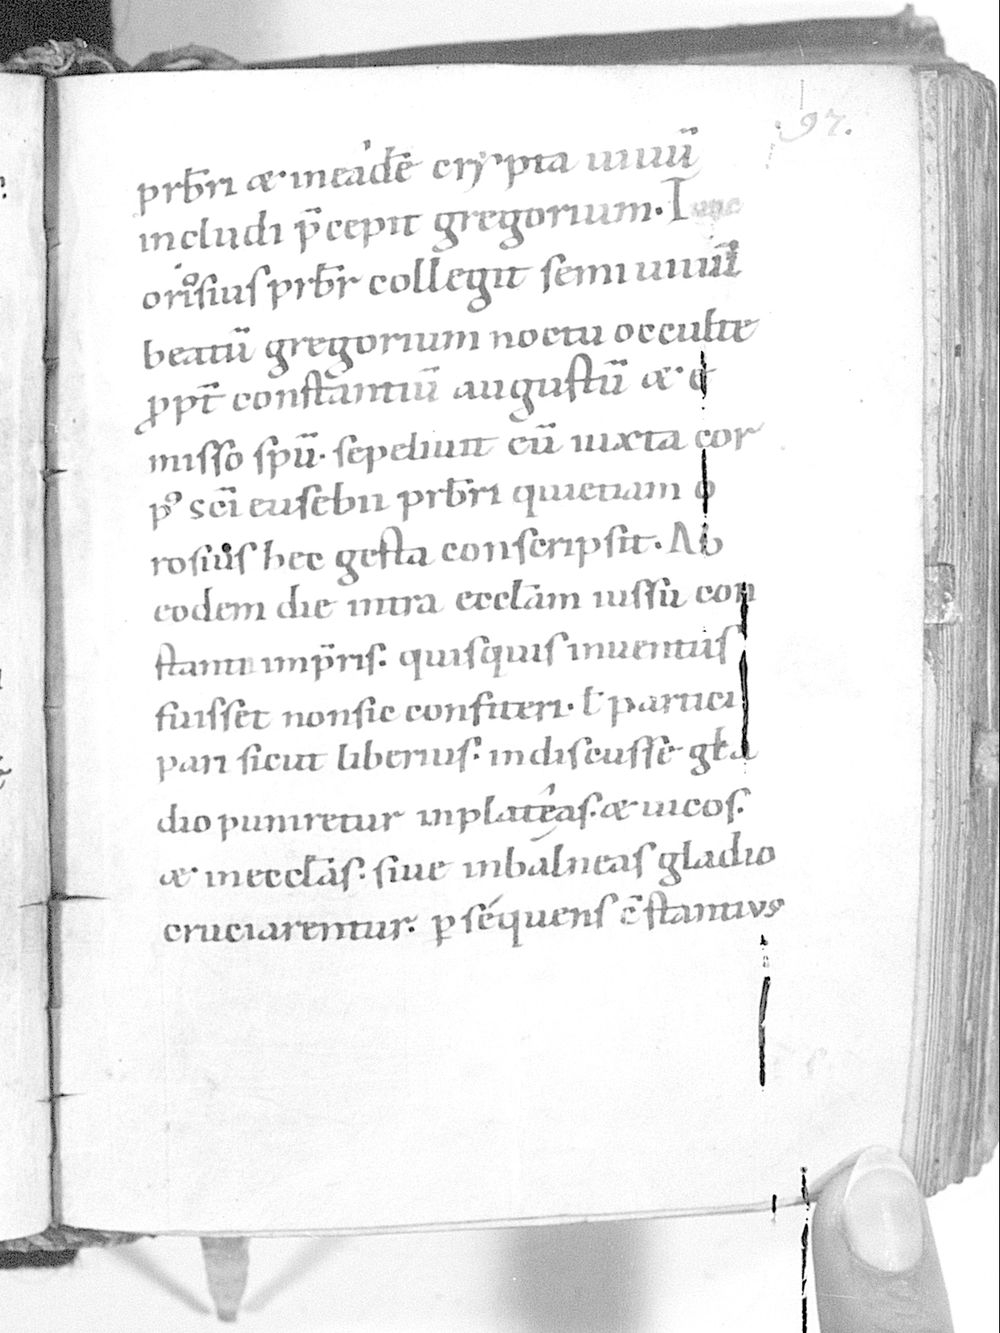 97.
prb̄ri & in eadē crypta uiuū
includi p̄cepit gregorium. Tunc
orosius prb̄r collegit semi uiuū
beatū gregorium noctu occulte
ꝓpt̄ constantiū augustū & e
misso spū. sepeliuit eū iuxta cor
p⁹ sc̄i eusebii prb̄ri qui etiam o
rosius hec gesta conscripsit. Ab
eodem die intra eccl̄am iussu con
stantii imp̄ris. quisquis inuentus
fuisset non sic confiteri. ł partici
pari sicut liberius. indiscusse gla
dio puniretur in plateas. & uicos.
& in eccl̄as. siue in balneas gladio
cruciarentur. ꝑsequens c̄stantius